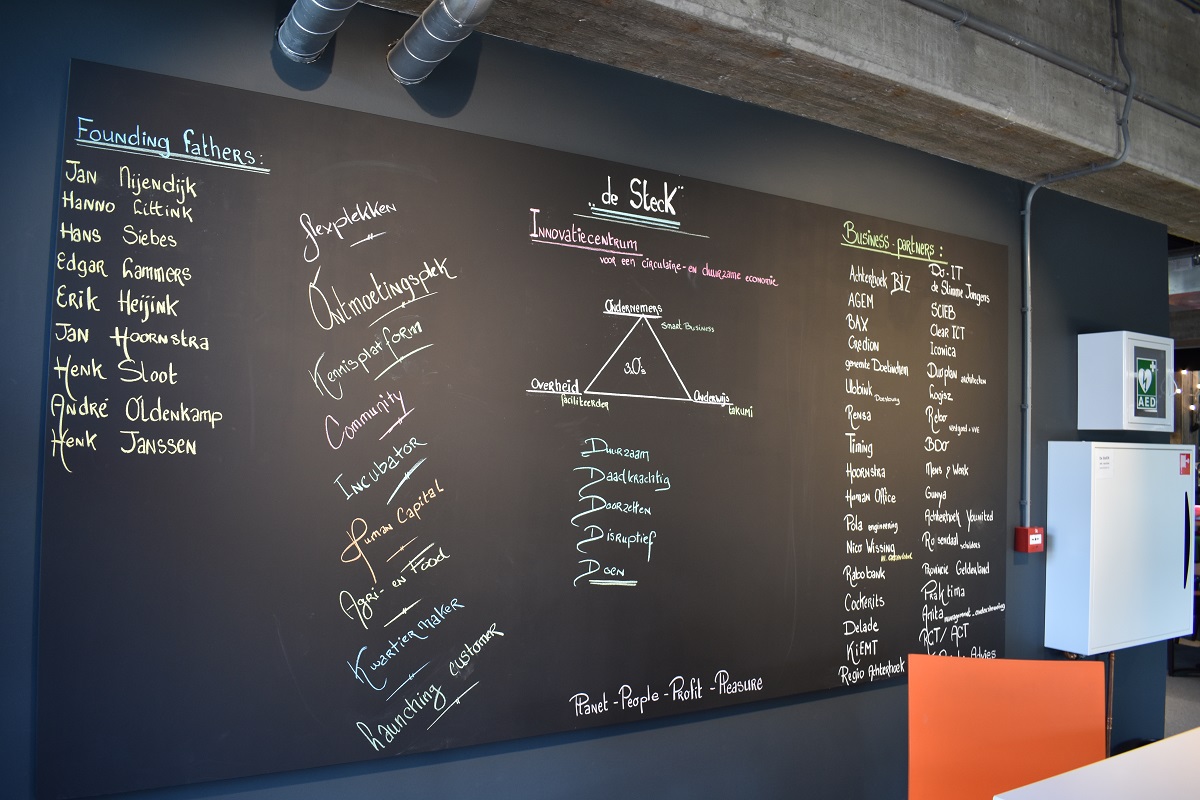 Founding fathers:
Jan Nijendijk
Hanno Littink
Hans Siebes
Edgar Lammers
Erik Heijink
Jan Hoornstra
Henk Sloot
André Oldenkamp
Henk Janssen
flexplekken
Ontmoetingsplek
Kennisplatform
Community
Incubator
Human Capital
Agri- en Food
Kwartiermaker
Launching customer
"de Steck"
Innovatiecentrum
voor een circulaire- en duurzame economie
Ondernemers
Smart Business
3 O's
Overheid
faciliteerden
Onderwijs
Takumi
Duurzaam
Daadkrachtig
Doorzetten
Disruptief
Doen
Planet - People - Profit - Pleasure
Business-partners:
Achterhoek BIZ
AGEM
BAX
Credion
gemeente Doetinchem
Ubbink Doesburg
Rensa
Timing
Hoornstra
Human Office
Pola engineering
Nico Wissing
Rabobank
Cockerits
Delade
KiEMT
Regio Achterhoek
Do-IT
de Slimme Jongens
SCIEB
Clear ICT
Iconica
Duoplan architecten
Logisz
Rebo vastgoed + VVE
BDO
Mens & Werk
Gunya
Achterhoek Younited
Rosendaal schilders
Provincie Gelderland
Praktima
Anita management-ondersteuning
RCT / ACT
Advies
AED